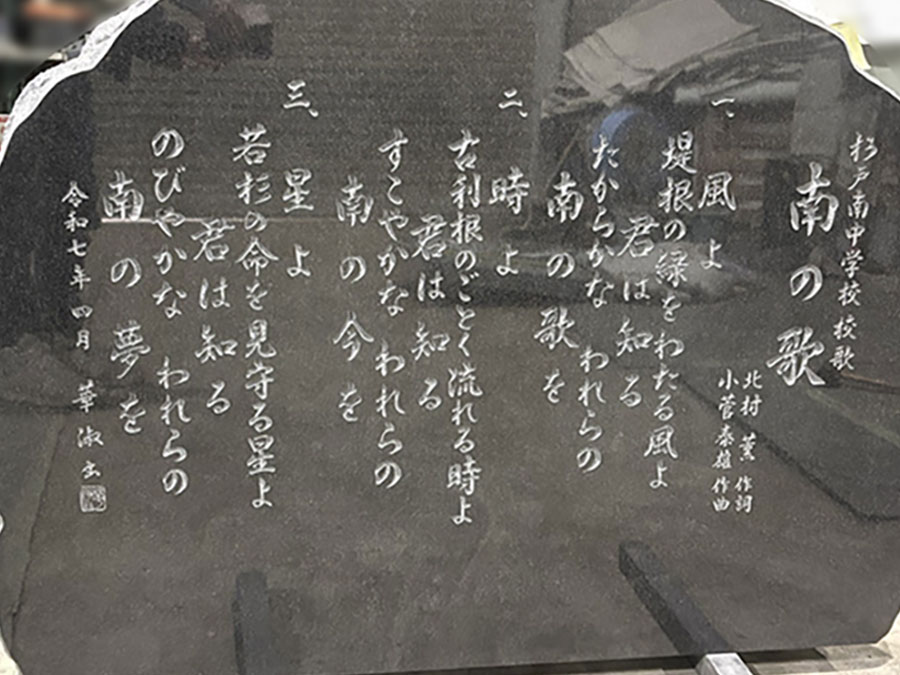 杉戸南中学校 校歌
南の歌
北村 薫 作詞
小菅泰雄 作曲
一、
風よ
堤根の緑をわたる風よ
君は知る
たからかな われらの
南の歌を
二、
時よ
古利根のごとく流れる時よ
君は知る
すこやかな われらの
南の今を
三、
星よ
若杉の命を見守る星よ
君は知る
のびやかな われらの
南の夢を
令和七年四月 華淑書